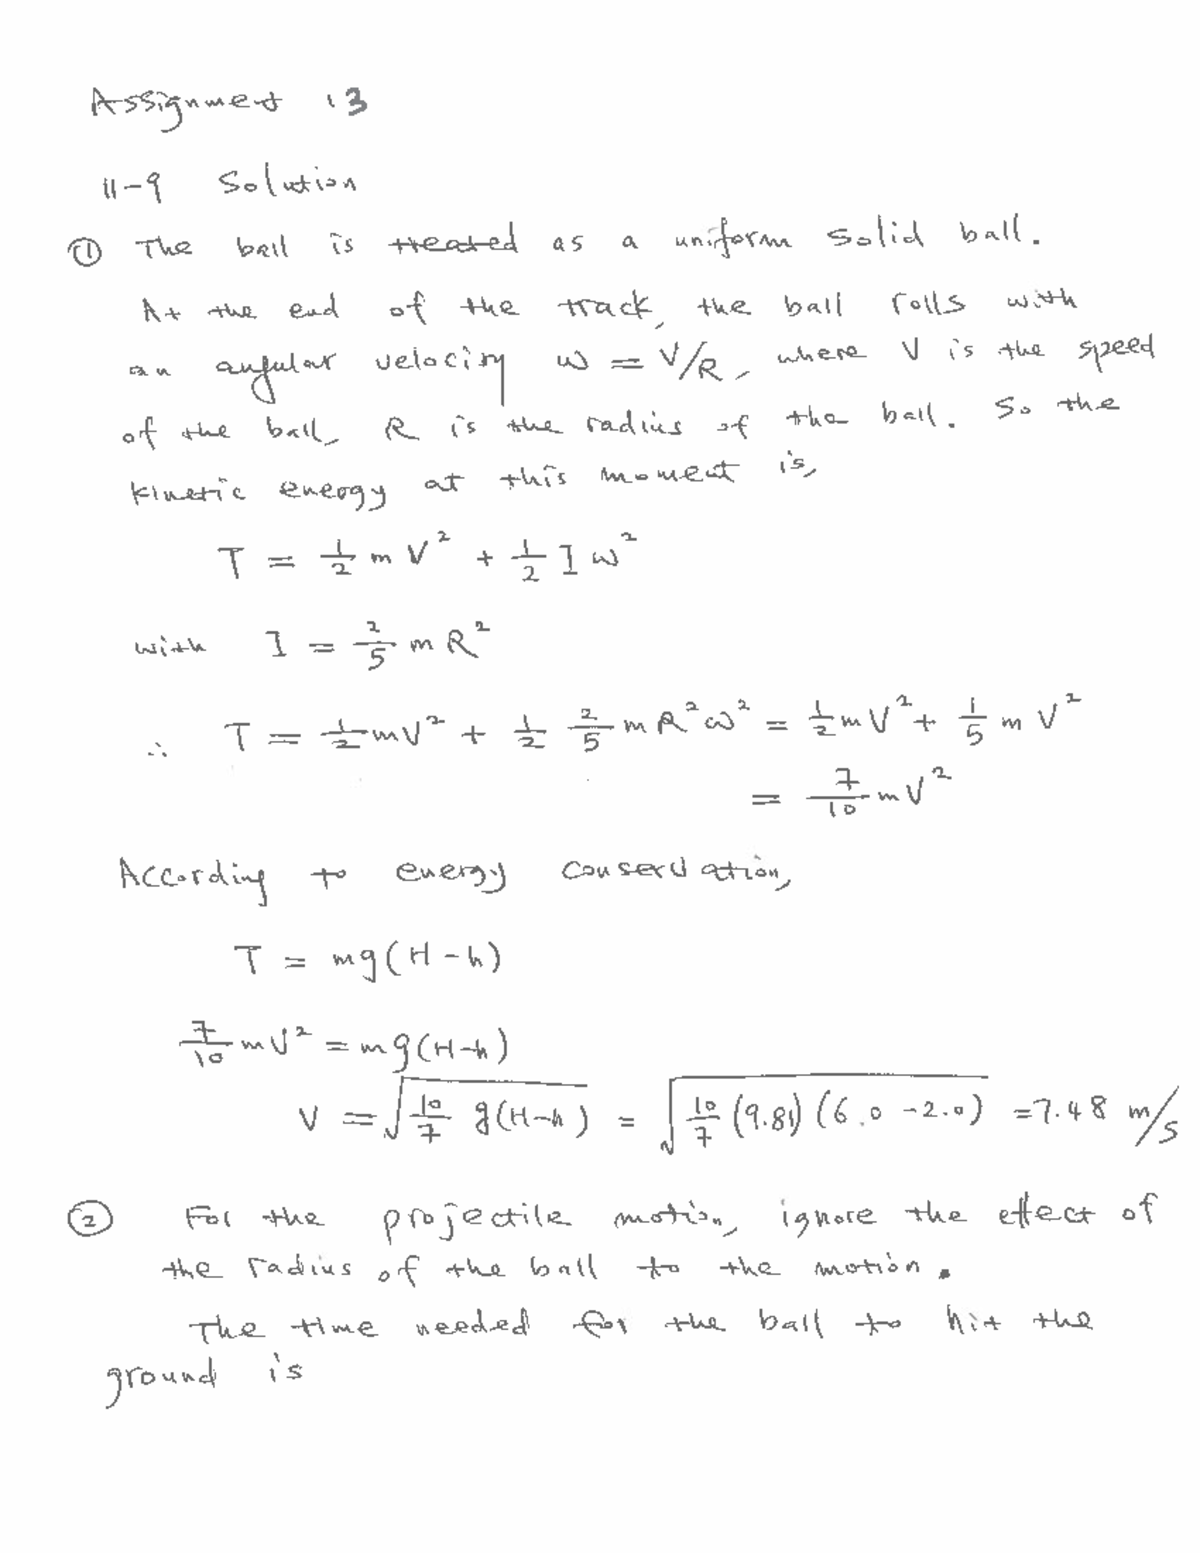 Assignment 13
11-9 Solution
① The ball is treated as a uniform solid ball.
At the end of the track, the ball rolls with
an angular velocity ω = V/R, where V is the speed
of the ball, R is the radius of the ball. So the
kinetic energy at this moment is,
T = 1/2 m V² + 1/2 I ω²
with I = 2/5 m R²
∴ T = 1/2 mV² + 1/2 2/5 m R² ω² = 1/2 m V² + 1/5 m V²
= 7/10 m V²
According to energy conservation,
T = mg(H-h)
7/10 m V² = mg(H-h)
V = √(10/7 g(H-h)) = √(10/7 (9.81)(6.0 - 2.0)) = 7.48 m/s
② For the projectile motion, ignore the effect of
the radius of the ball to the motion.
The time needed for the ball to hit the
ground is